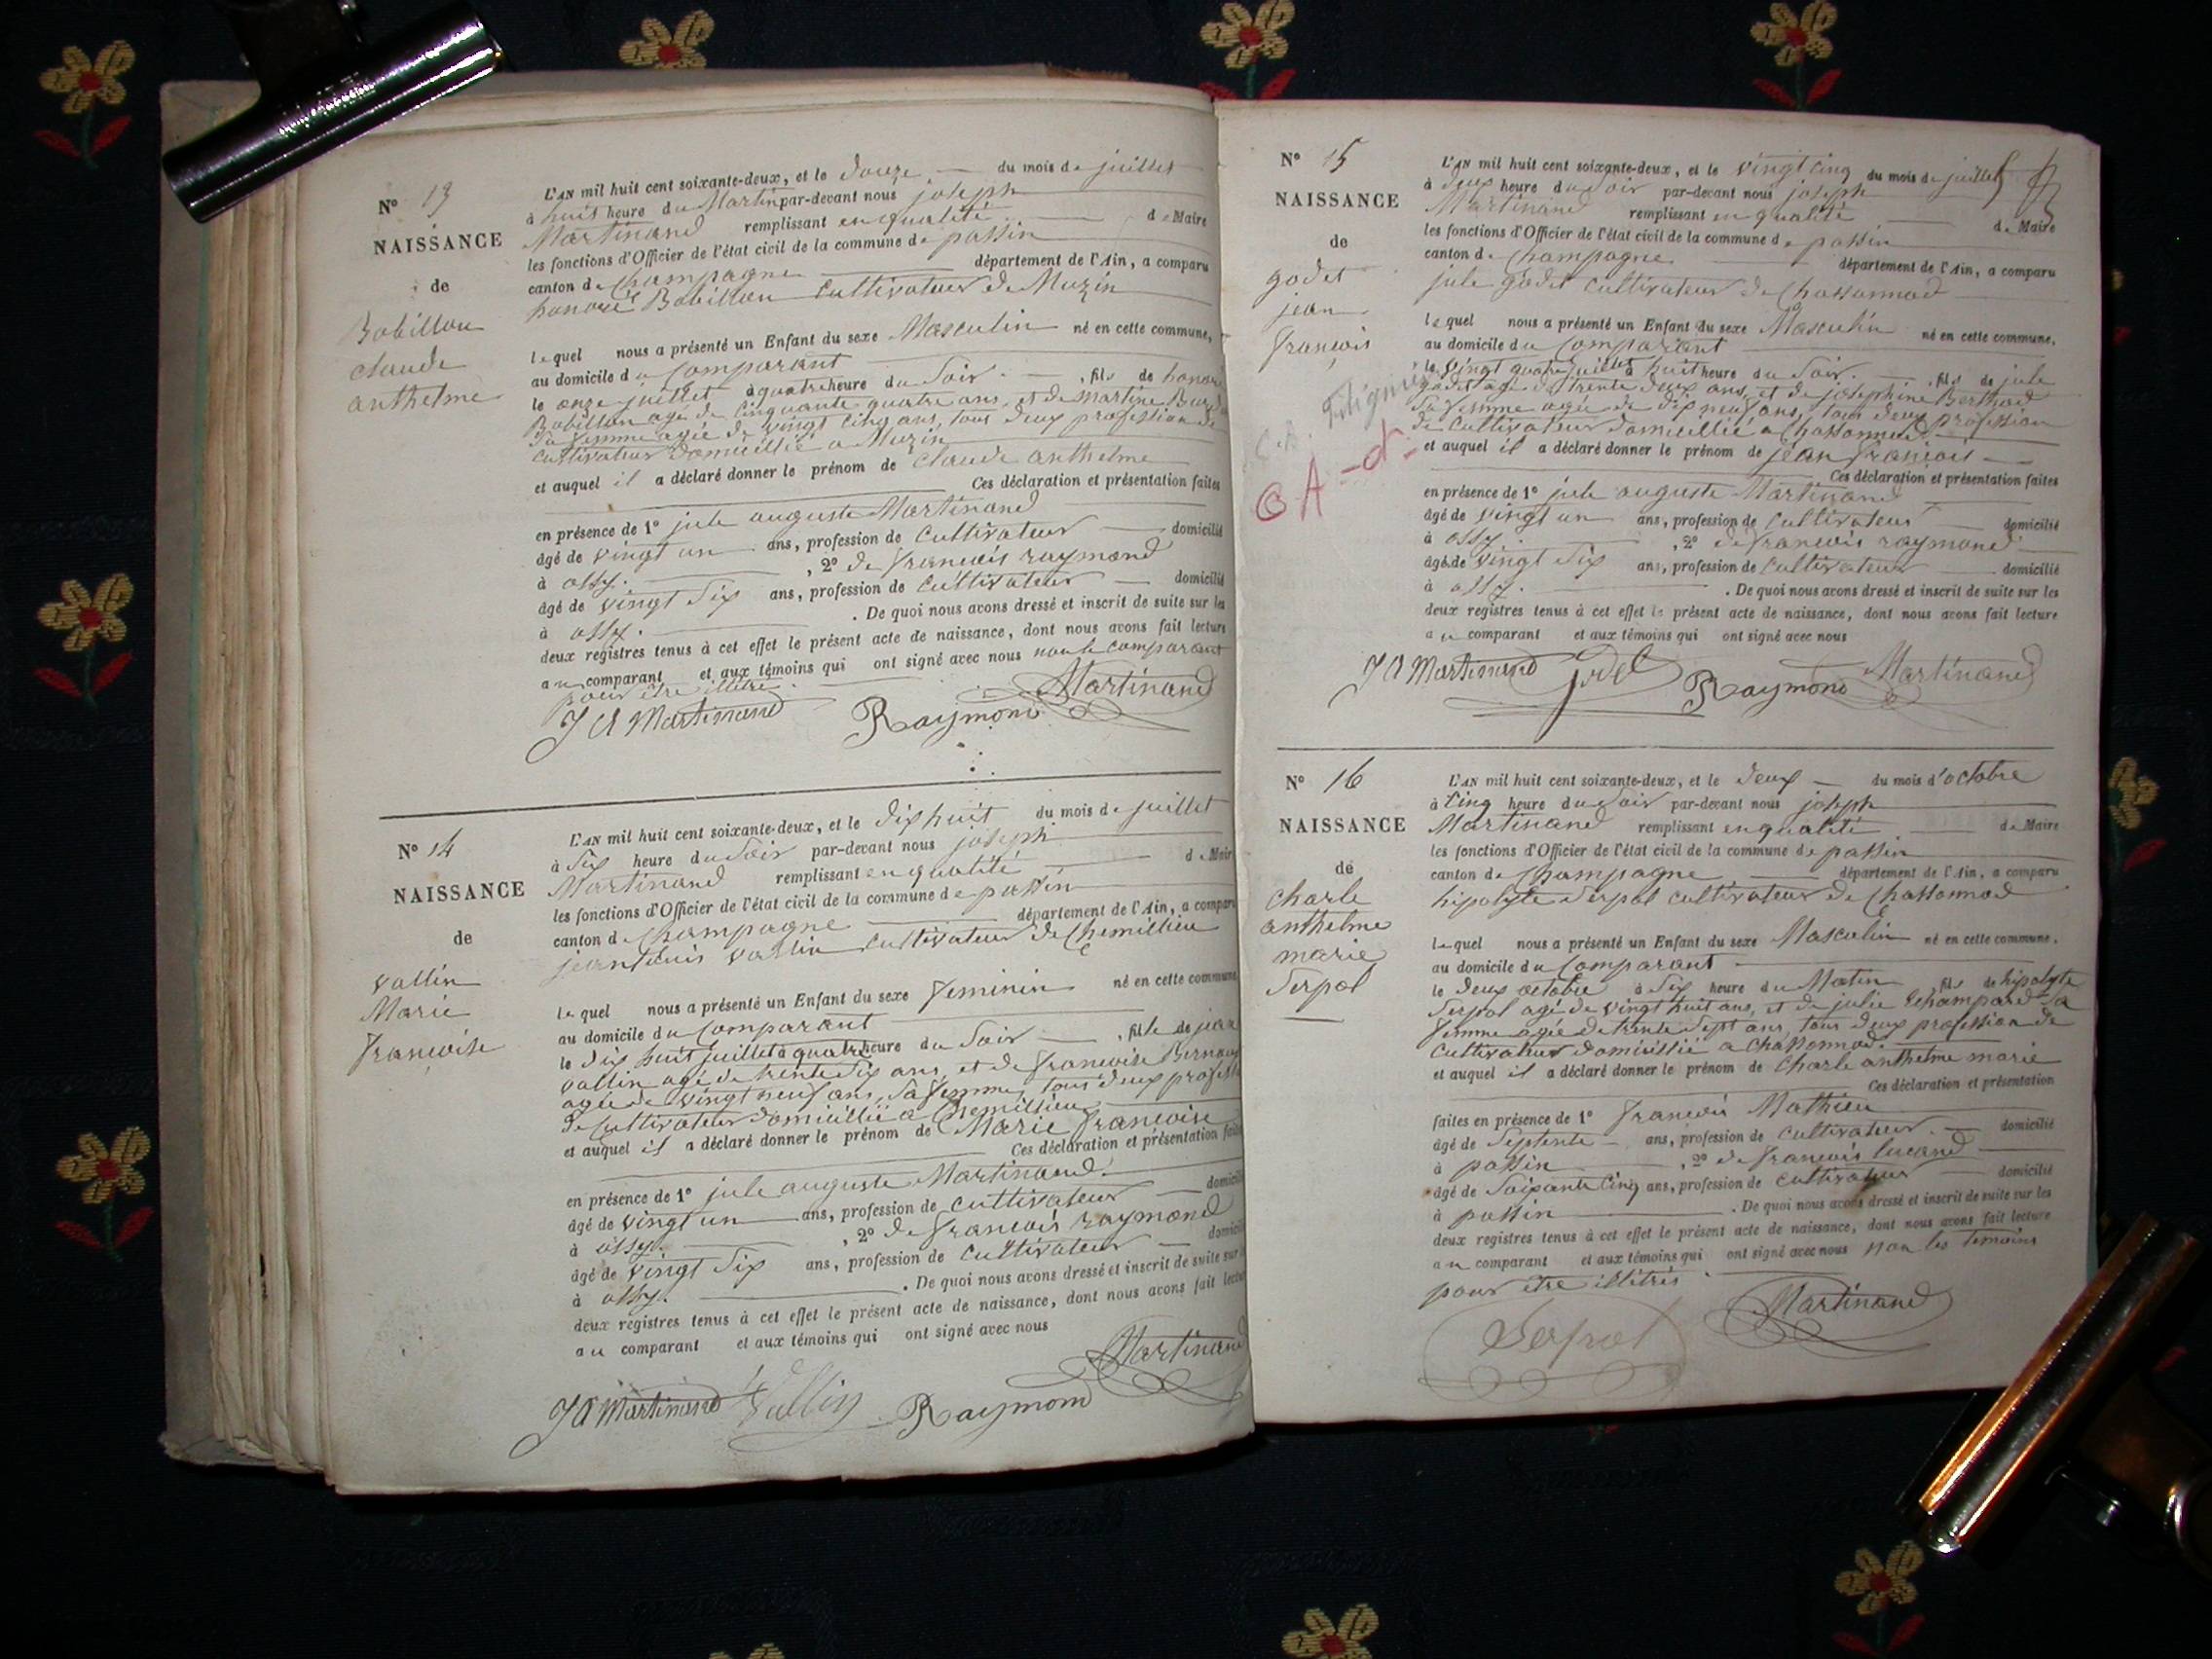 N° 13
NAISSANCE
de
Bobillon
claude
anthelme
L'AN mil huit cent soixante-deux, et le douze du mois de juillet
à huit heure du Martin par-devant nous joseph
Martinand remplissant en qualité de Maire
les fonctions d'Officier de l'état civil de la commune de passin
canton de Champagne département de l'Ain, a comparu
honoré Bobillon cultivateur de Muzin
lequel nous a présenté un Enfant du sexe Masculin né en cette commune,
au domicile du Comparant
le onze juillet à quatre heure du Soir, fils de honoré
Bobillon agé de cinquante quatre ans, et de Martine
sa femme agée de vingt cinq ans, tous deux profession de
cultivateur domicillié a Muzin
et auquel il a déclaré donner le prénom de claude anthelme
Ces déclaration et présentation faites
en présence de 1° jule auguste Martinand
âgé de vingt un ans, profession de cultivateur domicilié
à ossy. , 2° de francois raymond
âgé de vingt six ans, profession de cultivateur domicilié
à ossy. . De quoi nous avons dressé et inscrit de suite sur les
deux registres tenus à cet effet le présent acte de naissance, dont nous avons fait lecture
au comparant et aux témoins qui ont signé avec nous non le comparant
pour être illitré
J A Martinand Raymond Martinand
N° 14
NAISSANCE
de
vallin
Marie
francoise
L'AN mil huit cent soixante-deux, et le dix huit du mois de juillet
à six heure du Soir par-devant nous joseph
Martinand remplissant en qualité de Mair
les fonctions d'Officier de l'état civil de la commune de passin
canton de Champagne département de l'Ain, a comparu
jean louis vallin cultivateur de Chemillieu
lequel nous a présenté un Enfant du sexe feminin né en cette commune
au domicile du Comparant
le dix huit juillet à quatre heure du Soir, fille de jean
vallin agé de trente six ans, et de francoise
agée de vingt neuf ans, sa femme, tous deux
de cultivateur domicillié a Chemillieu
et auquel il a déclaré donner le prénom de Marie francoise
Ces déclaration et présentation faites
en présence de 1° jule auguste Martinand.
âgé de vingt un ans, profession de cultivateur domicilié
à ossy. , 2° de francois raymond
âgé de vingt six ans, profession de cultivateur domicilié
à ossy. . De quoi nous avons dressé et inscrit de suite sur
deux registres tenus à cet effet le présent acte de naissance, dont nous avons fait lecture
au comparant et aux témoins qui ont signé avec nous
J A Martinand Vallin Raymond Martinand
N° 15
NAISSANCE
de
godet
jean
francois
L'AN mil huit cent soixante-deux, et le vingt cinq du mois de juillet
à deux heure du Soir par-devant nous joseph
Martinand remplissant en qualité de Maire
les fonctions d'Officier de l'état civil de la commune de passin
canton de Champagne département de l'Ain, a comparu
jule godet cultivateur de Chassonnod
lequel nous a présenté un Enfant du sexe Masculin né en cette commune,
au domicile du Comparant
le vingt quatre juillet à huit heure du Soir, fils de jule
godet agé de trente deux ans, et de josephine Berthod
sa femme agée de dix neuf ans, tous deux profession
de cultivateur domicillié a Chassonnod.
et auquel il a déclaré donner le prénom de jean francois
Ces déclaration et présentation faites
en présence de 1° jule auguste Martinand
âgé de vingt un ans, profession de cultivateur domicilié
à ossy. , 2° de francois raymond
âgé de vingt six ans, profession de cultivateur domicilié
à ossy. . De quoi nous avons dressé et inscrit de suite sur les
deux registres tenus à cet effet le présent acte de naissance, dont nous avons fait lecture
au comparant et aux témoins qui ont signé avec nous
J A Martinand Godet Raymond Martinand
N° 16
NAISSANCE
de
charle
anthelme
marie
Serpol
L'AN mil huit cent soixante-deux, et le deux du mois d'octobre
à cinq heure du Soir par-devant nous joseph
Martinand remplissant en qualité de Maire
les fonctions d'Officier de l'état civil de la commune de passin
canton de Champagne département de l'Ain, a comparu
hipolyte Serpol cultivateur de Chassonnod
lequel nous a présenté un Enfant du sexe Masculin né en cette commune,
au domicile du Comparant
le deux octobre à six heure du Matin, fils de hipolyte
Serpol agé de vingt huit ans, et de julie Echampard sa
femme agée de trente sept ans, tous deux profession de
cultivateur domicillié a Chassonnod.
et auquel il a déclaré donner le prénom de charle anthelme marie
Ces déclaration et présentation
faites en présence de 1° francois Mathieu
âgé de Septente ans, profession de cultivateur domicilié
à passin , 2° de francois lucand
âgé de soixante cinq ans, profession de cultivateur domicilié
à passin . De quoi nous avons dressé et inscrit de suite sur les
deux registres tenus à cet effet le présent acte de naissance, dont nous avons fait lecture
au comparant et aux témoins qui ont signé avec nous non les temoins
pour être illitrés
Serpol Martinand